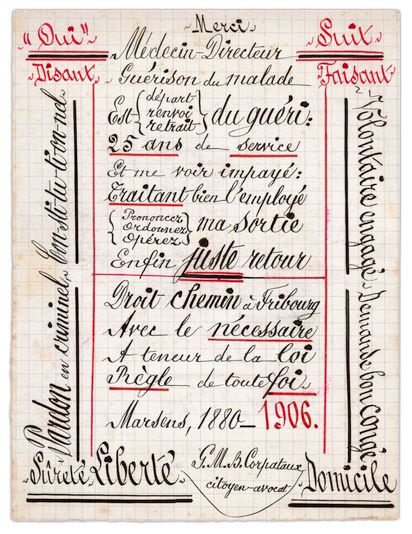 Merci
"Oui" Suit
Médecin-Directeur
Disant Guérison du malade Faisant
Est {départ renvoi retrait} du guéri:
25 ans de service
Et me voir impayé:
Traitant bien l'employé
{Prononcez Ordonnez Opérez} ma sortie
Enfin juste retour
Droit chemin à Fribourg
Avec le nécessaire
A teneur de la loi
Règle de toute foi.
Marsens, 1880–1906.
Pardon en criminel con-sti-tu-ti-on-nel
Volontaire engagé Demande bon Congé
Sûreté Liberté
G.M.B. Corpataux
citoyen-avocat
Domicile